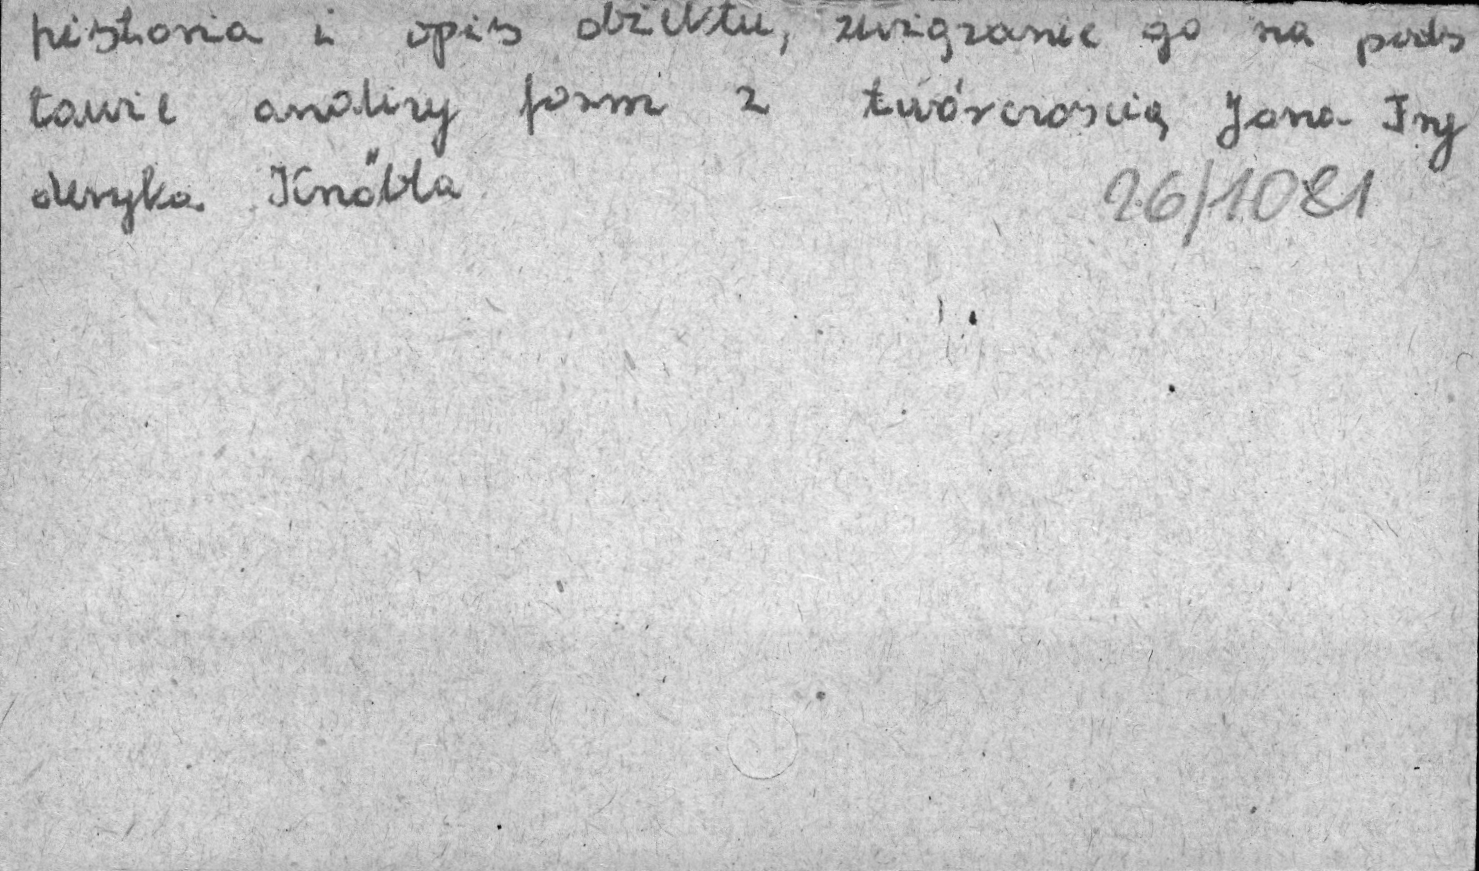 historia i opis obiektu, związanie go na pods
tawie analizy form z twórczością Jana Fry
deryka Knöbla
26/1081